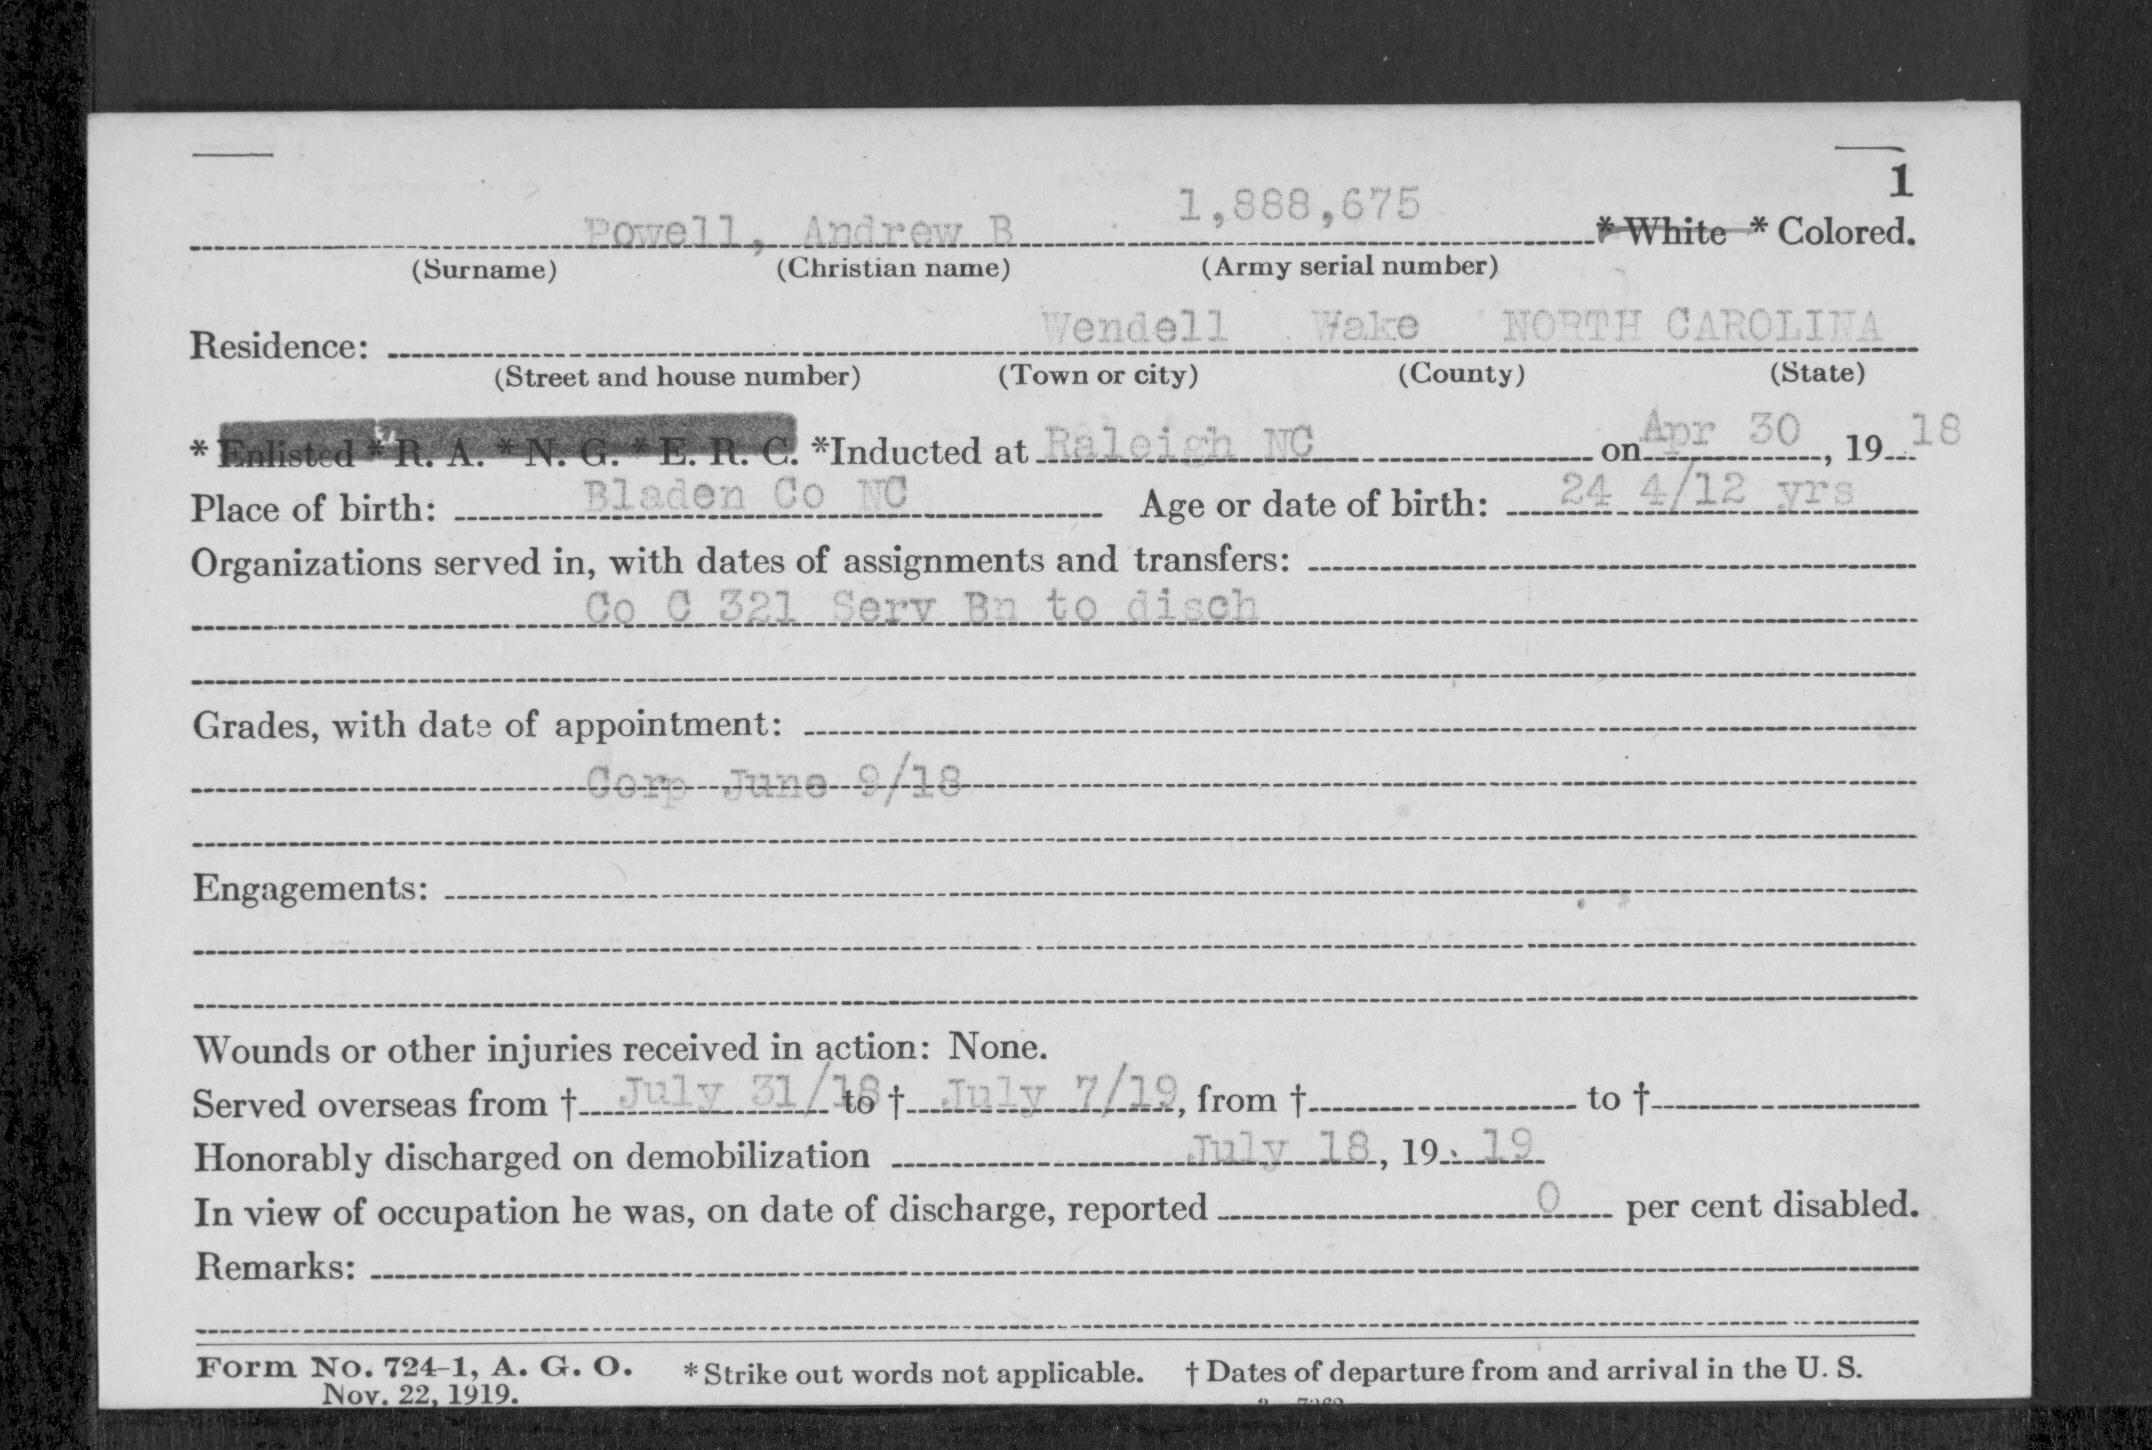 1
Powell, Andrew B 1,888,675 * White * Colored.
(Surname) (Christian name) (Army serial number)
Residence: Wendell Wake NORTH CAROLINA
(Street and house number) (Town or city) (County) (State)
* Enlisted * R. A. * N. G. * E. R. C. *Inducted at Raleigh NC on Apr 30, 19 18
Place of birth: Bladen Co NC Age or date of birth: 24 4/12 yrs
Organizations served in, with dates of assignments and transfers:
Co C 321 Serv Bn to disch
Grades, with date of appointment:
Corp June 9/18
Engagements:
Wounds or other injuries received in action: None.
Served overseas from † July 31/18 to † July 7/19, from † to †
Honorably discharged on demobilization July 18, 19 19
In view of occupation he was, on date of discharge, reported 0 per cent disabled.
Remarks:
Form No. 724-1, A. G. O. * Strike out words not applicable. † Dates of departure from and arrival in the U. S.
Nov. 22, 1919.